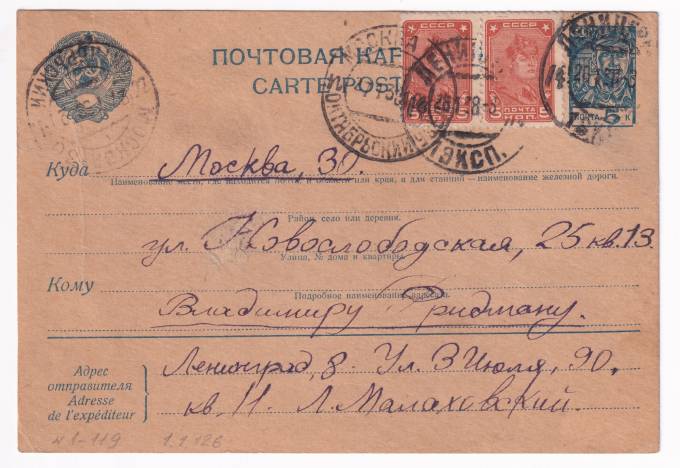 ПОЧТОВАЯ КАР
CARTE POST
СССР
ПОЧТА
5 КОП.
МОСКВА
ОКТЯБРЬСКИЙ
ЭКСП.
ПОЧТА 5 К
Куда Москва, 30.
Наименование места, где находится почта, и области или края, а для станций – наименование железной дороги.
Район, село или деревня.
ул. Новослободская, 25 кв. 13.
Улица, № дома и квартиры.
Кому
Подробное наименование адресата.
Владимиру Фридману.
Адрес отправителя
Adresse de l'expéditeur
Ленинград, 8. Ул. 3 Июля, 90,
кв. 11. Л. Малаховский.
1-119